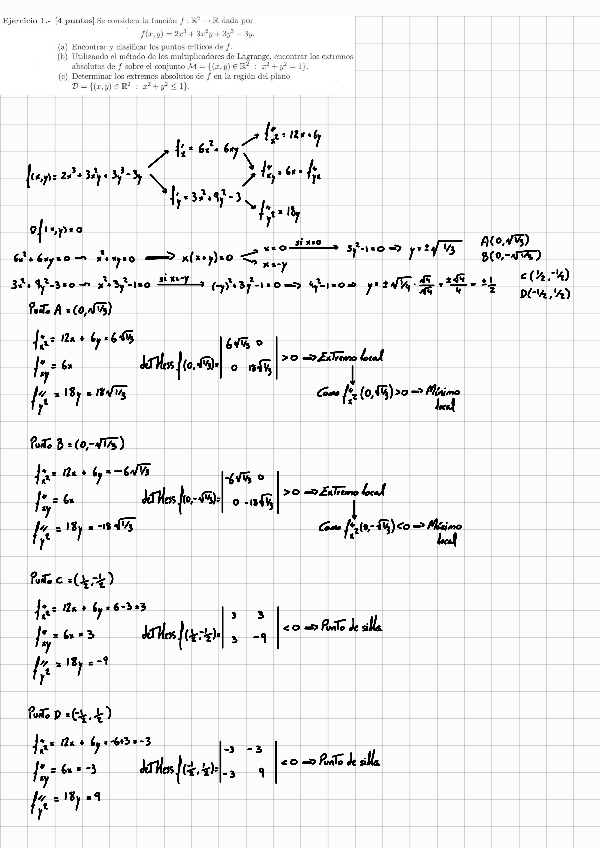 Ejercicio 1.- [4 puntos] Se considera la función f : ℝ² → ℝ dada por
f(x, y) = 2x³ + 3x²y + 3y³ − 3y.
(a) Encontrar y clasificar los puntos críticos de f.
(b) Utilizando el método de los multiplicadores de Lagrange, encontrar los extremos
absolutos de f sobre el conjunto M = {(x, y) ∈ ℝ² : x² + y² = 1}.
(c) Determinar los extremos absolutos de f en la región del plano
D = {(x, y) ∈ ℝ² : x² + y² ≤ 1}.
f''x² = 12x + 6y
f'x = 6x² + 6xy
f(x,y) = 2x³ + 3x²y + 3y³ − 3y
f''xy = 6x = f''yx
f'y = 3x² + 9y² − 3
f''y² = 18y
∇f(x,y) = 0
6x² + 6xy = 0 → x² + xy = 0 → x(x+y) = 0
x = 0 si x=0 → 3y² − 1 = 0 ⇒ y = ± √1/3
x = −y
A(0, √1/3)
B(0, −√1/3)
3x² + 9y² − 3 = 0 → x² + 3y² − 1 = 0 si x=−y → (−y)² + 3y² − 1 = 0 ⇒ 4y² − 1 = 0 ⇒ y = ± √1/4 · √4/√4 = ±√4/4 = ±1/2
C(1/2, −1/2)
D(−1/2, 1/2)
Punto A = (0, √1/3)
f''x² = 12x + 6y = 6√1/3
f''xy = 6x
f''y² = 18y = 18√1/3
det Hess f(0, √1/3) = | 6√1/3 0 | > 0 ⇒ Extremo local
| 0 18√1/3 |
Como f''x²(0, √1/3) > 0 → Mínimo local
Punto B = (0, −√1/3)
f''x² = 12x + 6y = −6√1/3
f''xy = 6x
f''y² = 18y = −18√1/3
det Hess f(0, −√1/3) = | −6√1/3 0 | > 0 ⇒ Extremo local
| 0 −18√1/3 |
Como f''x²(0, −√1/3) < 0 → Máximo local
Punto C = (1/2, −1/2)
f''x² = 12x + 6y = 6 − 3 = 3
f''xy = 6x = 3
f''y² = 18y = −9
det Hess f(1/2, −1/2) = | 3 3 | < 0 ⇒ Punto de silla
| 3 −9 |
Punto D = (−1/2, 1/2)
f''x² = 12x + 6y = −6+3 = −3
f''xy = 6x = −3
f''y² = 18y = 9
det Hess f(−1/2, 1/2) = | −3 −3 | < 0 ⇒ Punto de silla
| −3 9 |